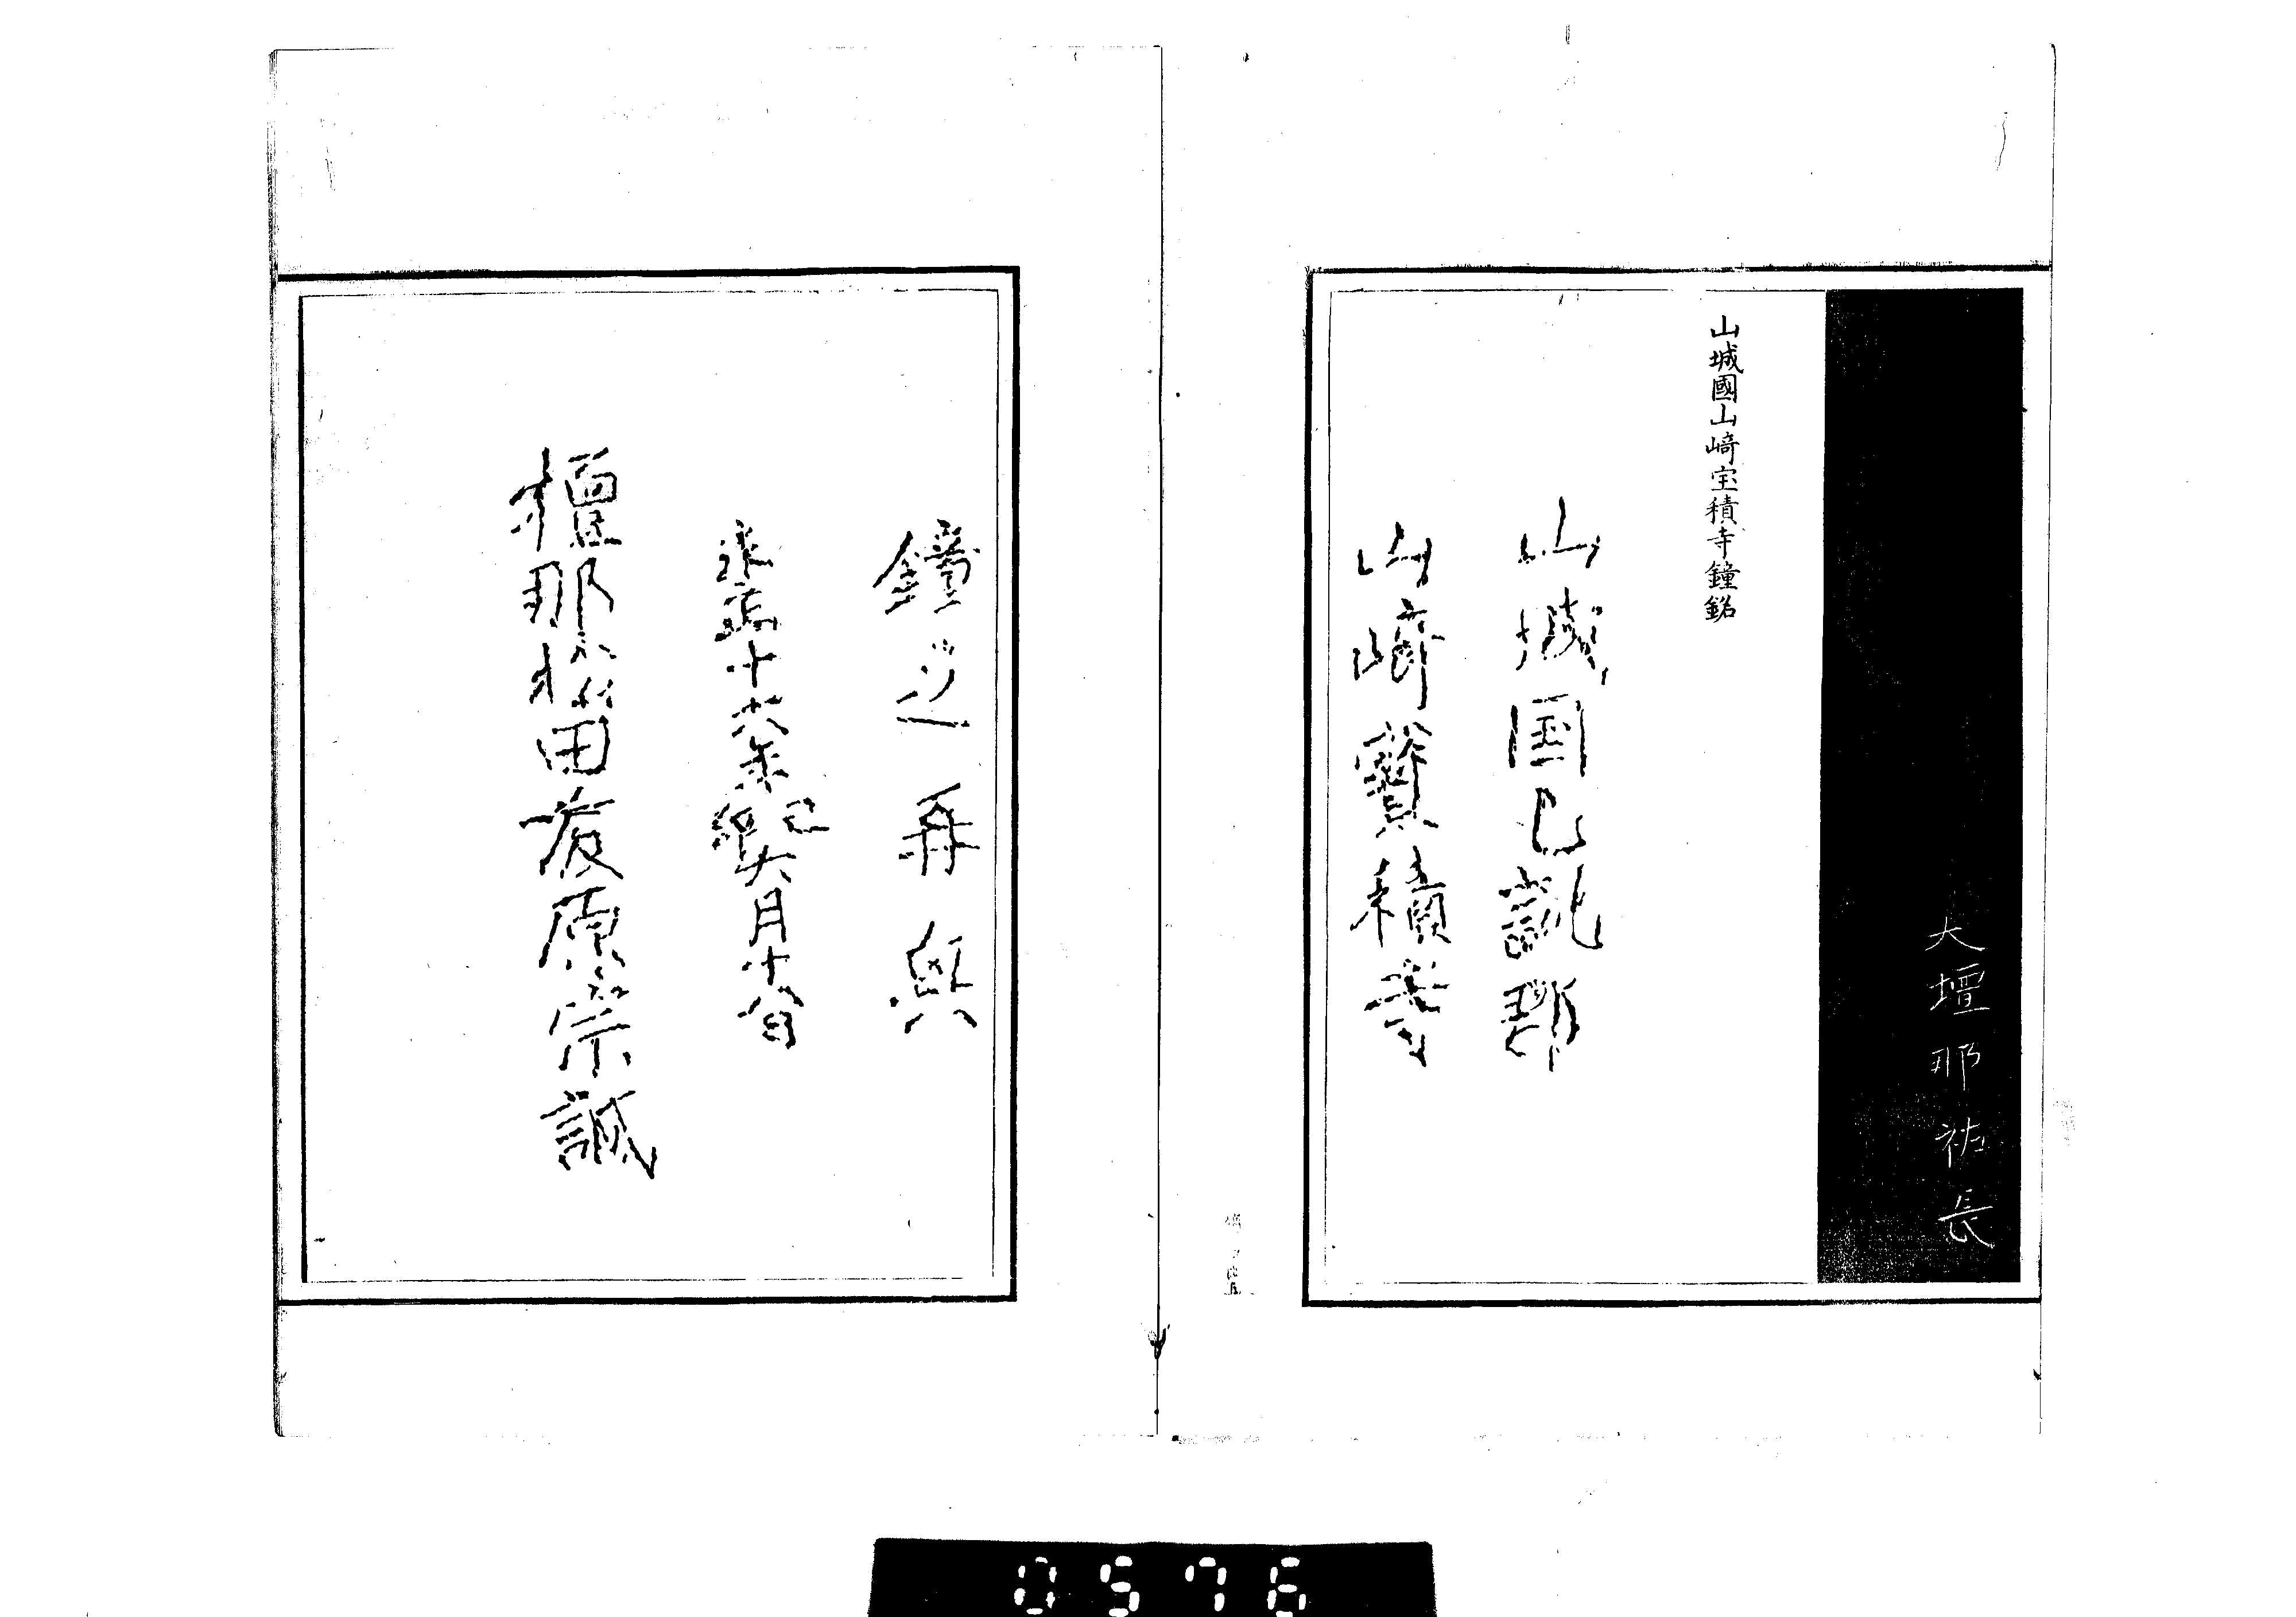 大壇那祐長
山城國山﨑宝積寺鐘銘
山城国乙訓郡
山崎寶積寺
鐘之再興
永正十六年己卯六月十八日
檀那松田藤原宗誠
0576